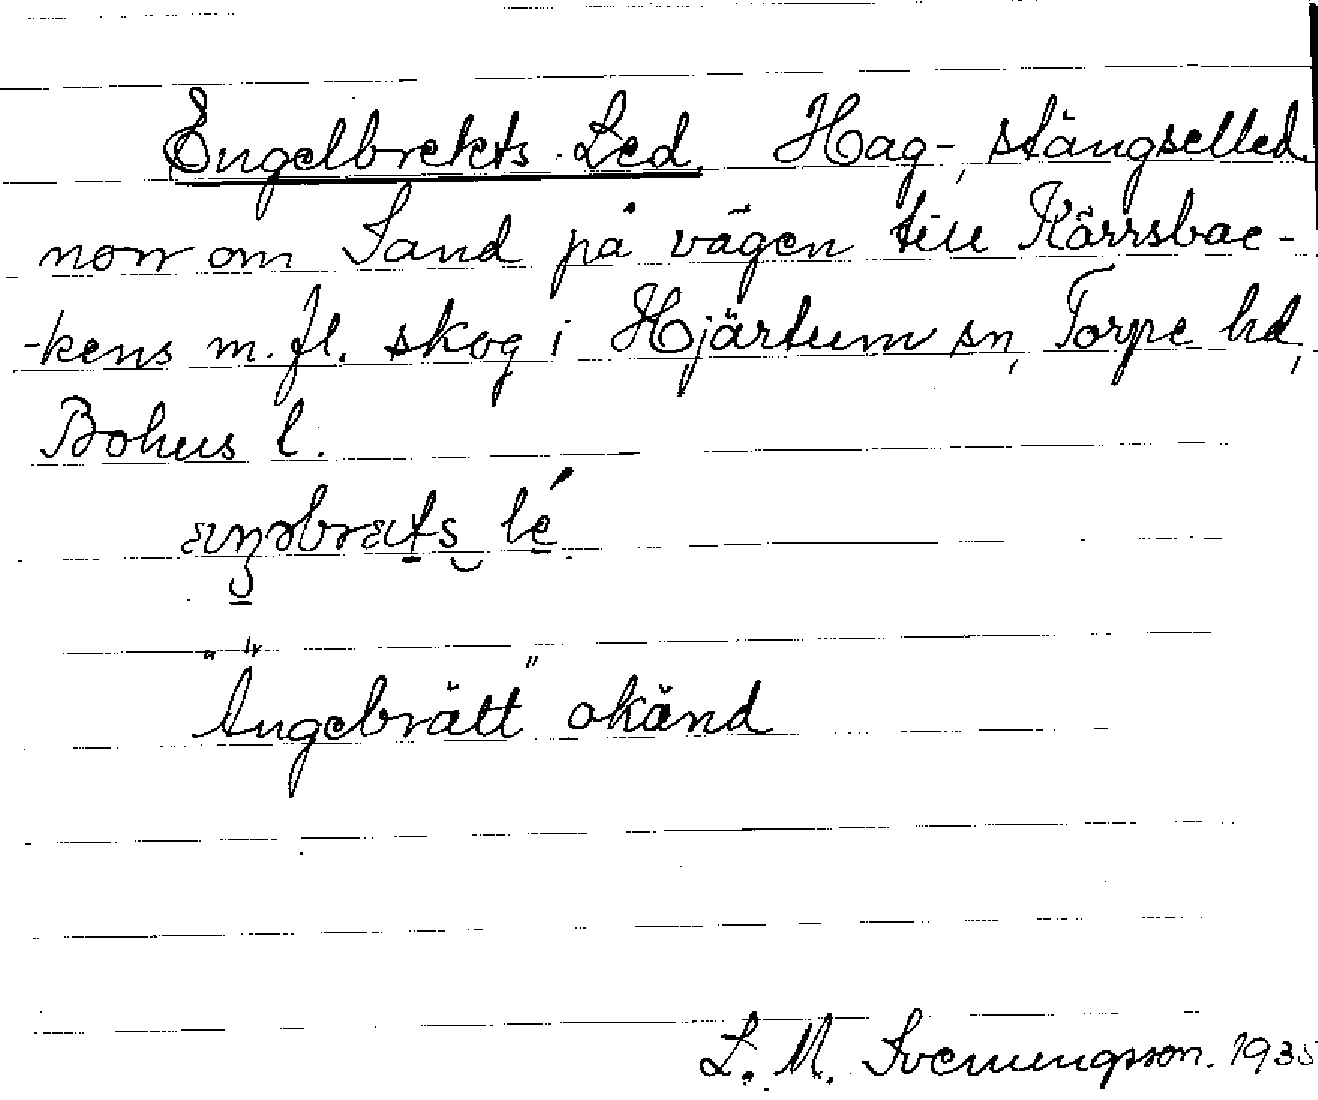 Engelbrekts Led Hag-, stängselled
norr om Sand på vägen till Kärrsbac-
-kens m.fl. skog i Hjärtum sn, Torpe hd,
Bohus l.
æŋəbræts lé
"Ängebrätt" okänd
L. M. Svenungsson. 1935